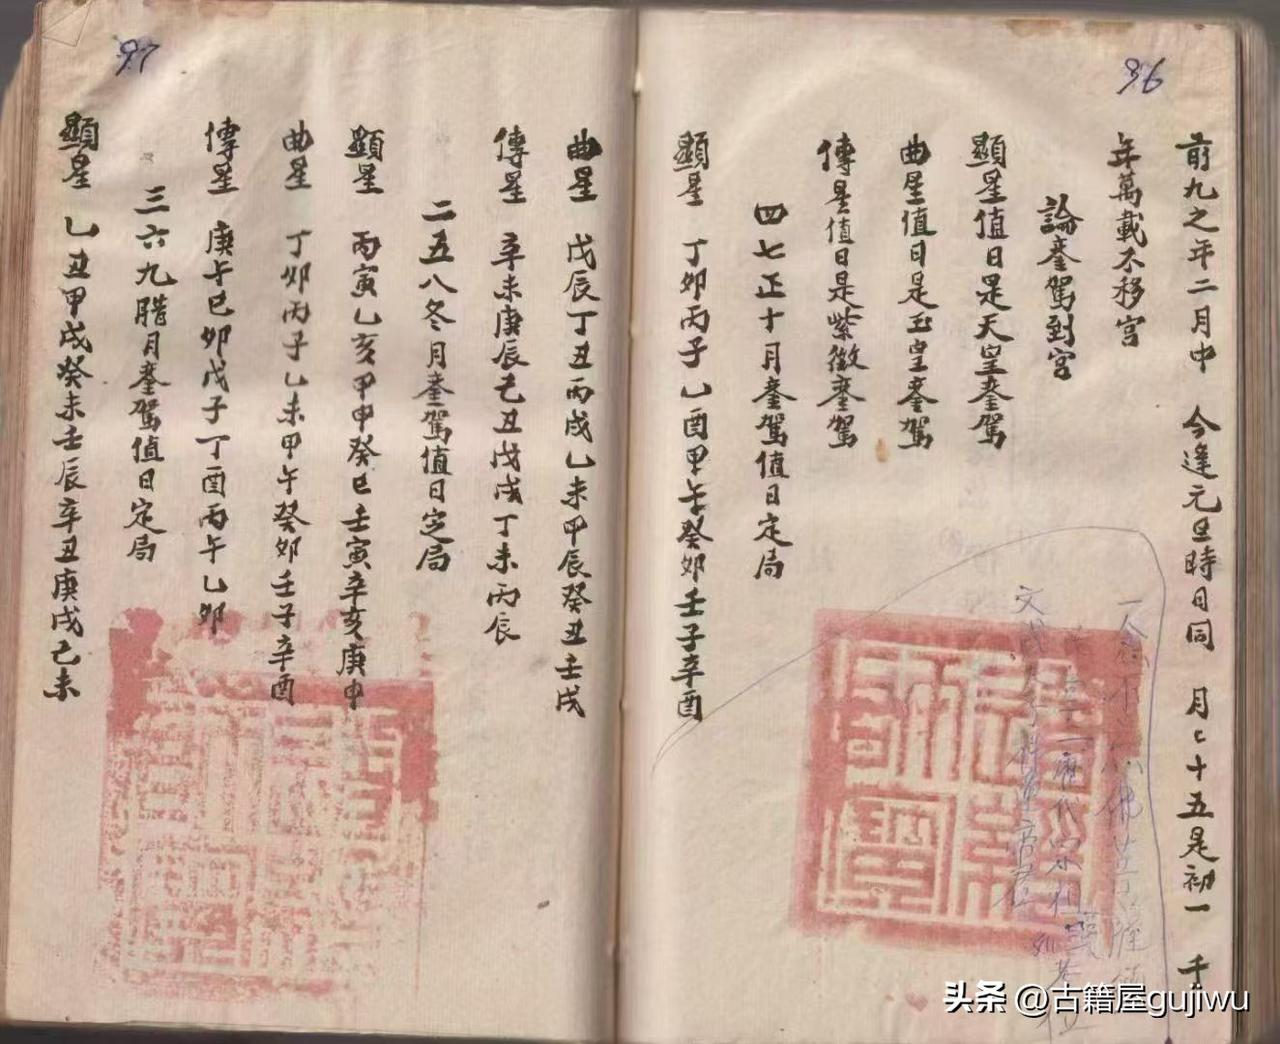 96
前九之年二月中 今逢元旦時日同 月七十五是初一 千
年萬載不移宮
論鑾駕到宮
顯星值日是天皇鑾駕
曲星值日是玉皇鑾駕
傳星值日是紫微鑾駕
四七正十月鑾駕值日定局
顯星 丁卯丙子乙酉甲午癸卯壬子辛酉
97
曲星 戊辰丁丑丙戌乙未甲辰癸丑壬戌
傳星 辛未庚辰己丑戊戌丁未丙辰
二五八冬月鑾駕值日定局
顯星 丙寅乙亥甲申癸巳壬寅辛亥庚申
曲星 丁卯丙子乙未甲午癸卯壬子辛酉
傳星 庚午己卯戊子丁酉丙午乙卯
三六九腊月鑾駕值日定局
顯星 乙丑甲戌癸未壬辰辛丑庚戌己未
头条 @古籍屋gujiwu